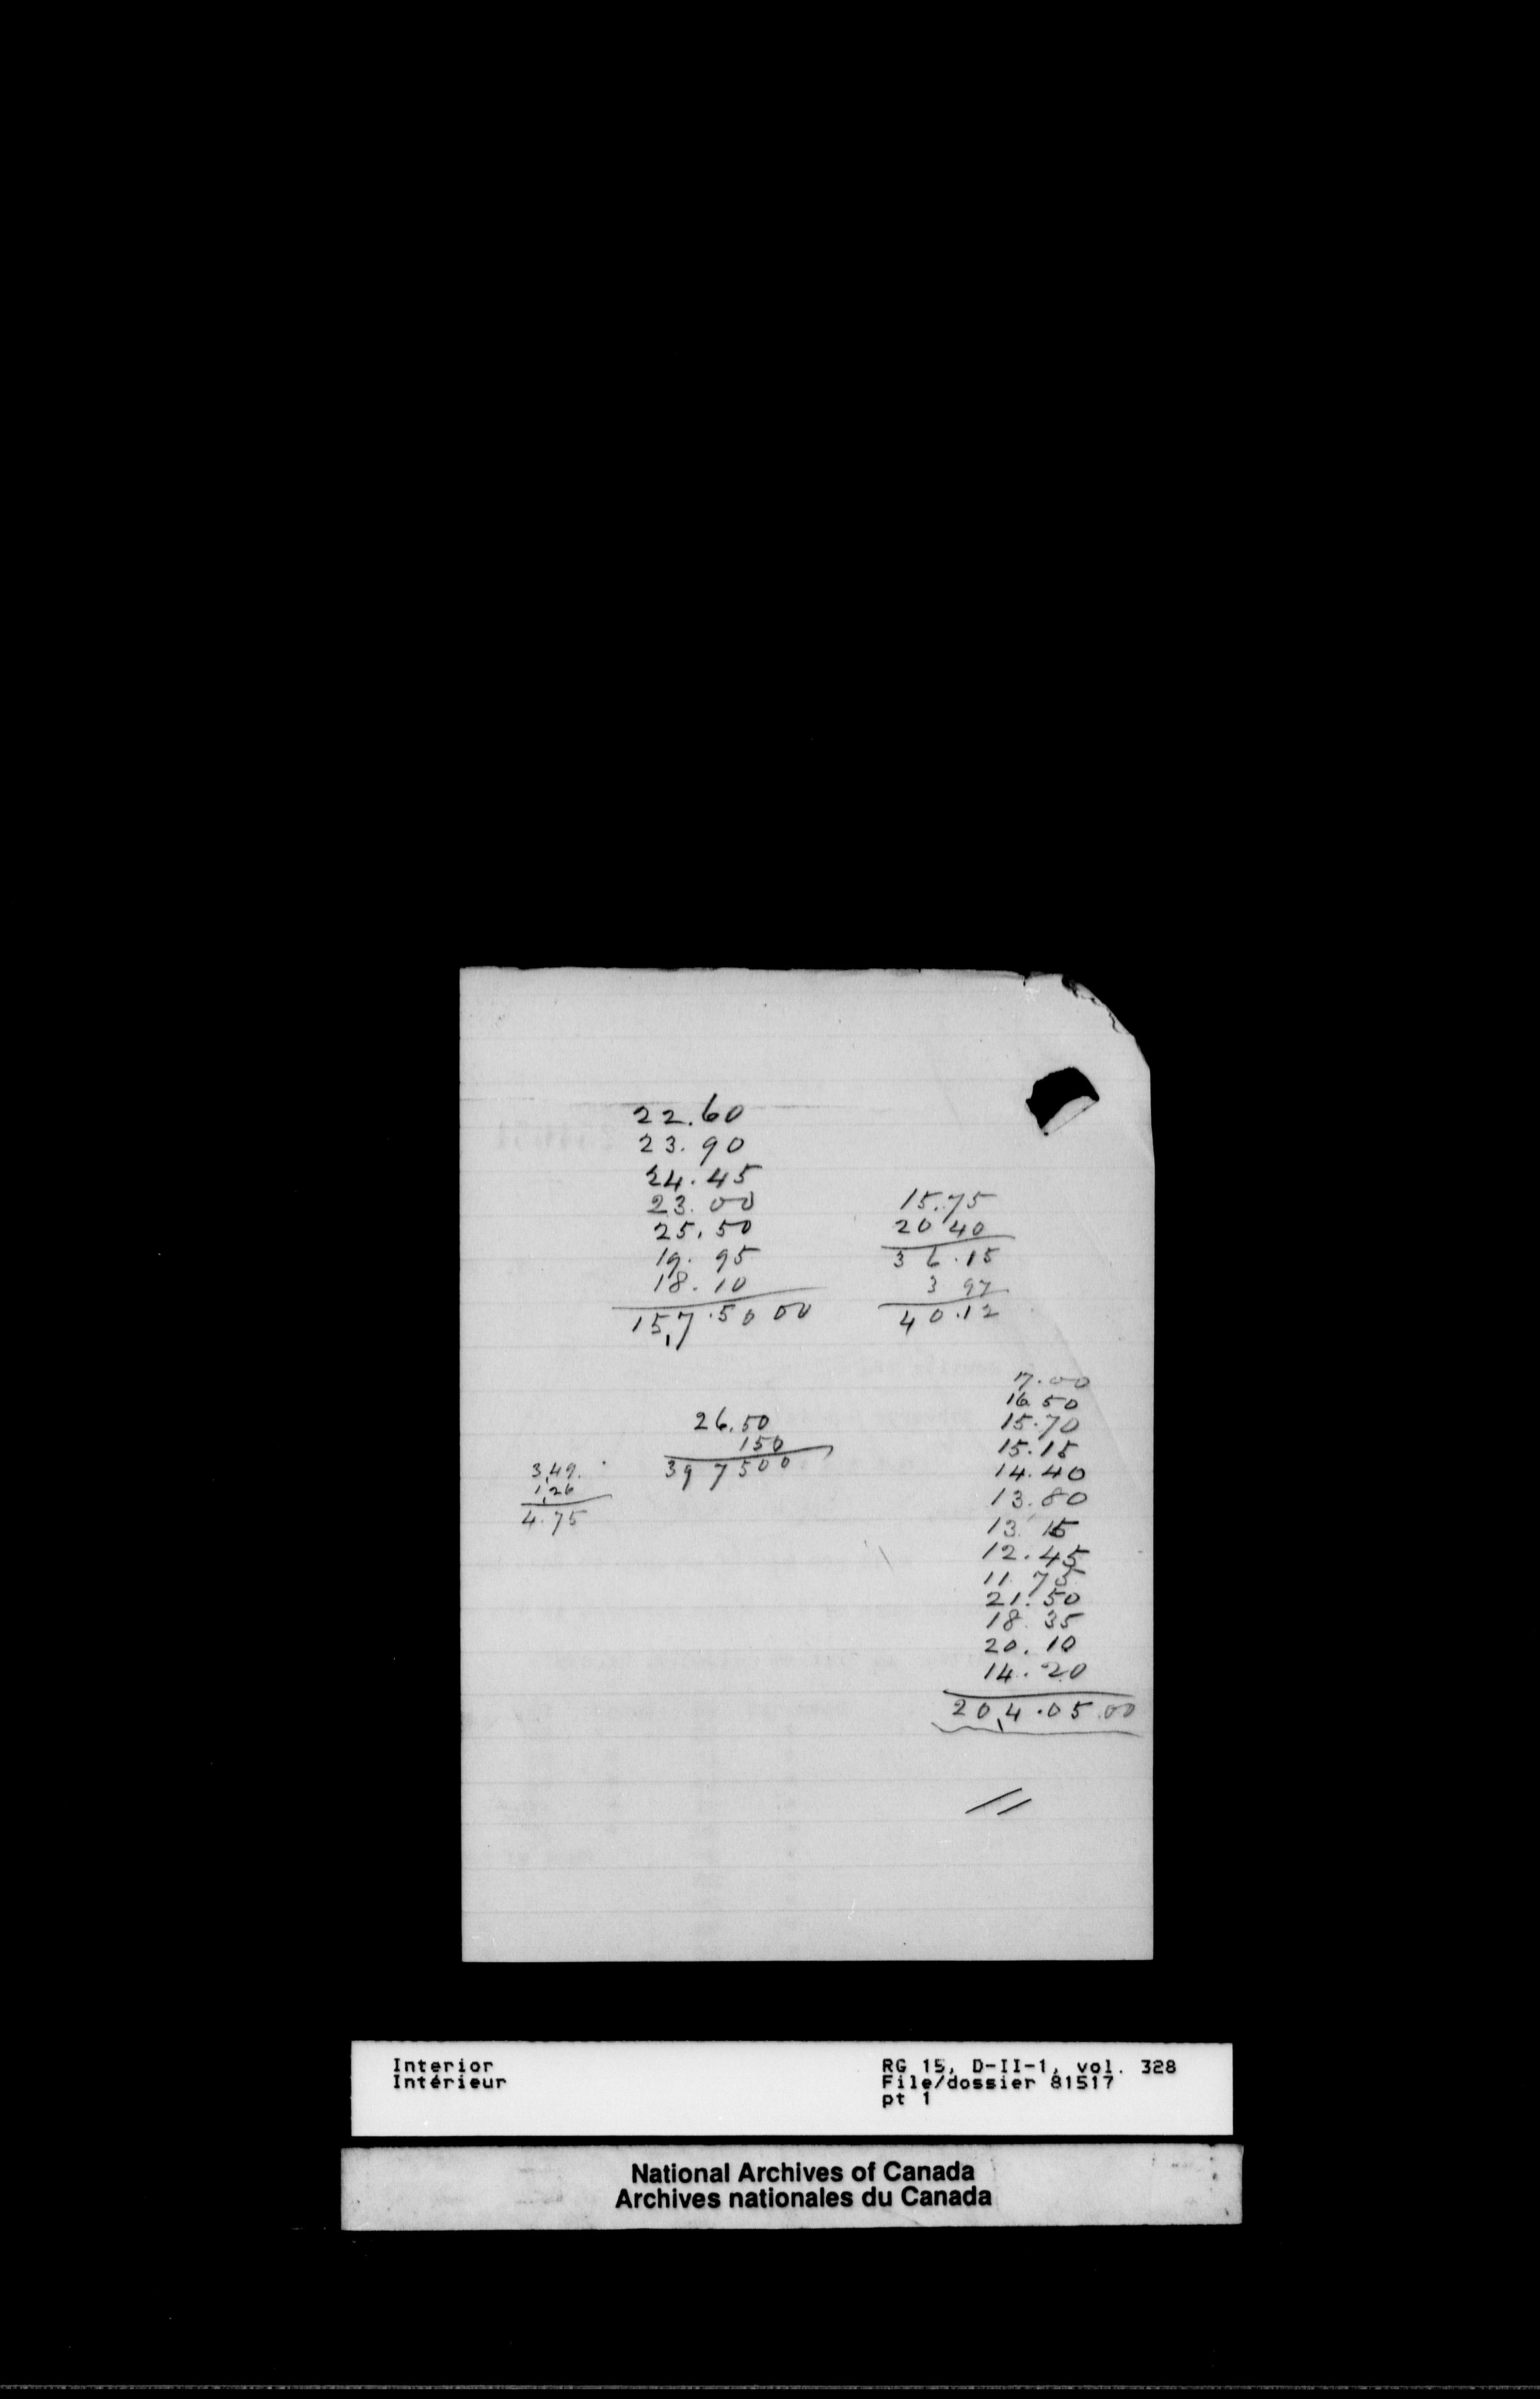 22.60
23.90
24.45
23.00
25.50
19.95
18.10
15,7.50 00
15.75
20 40
36.15
3 97
40.12
26.50
150
39 7500
3,49.
1,26
4.75
7.00
16.50
15.70
15.15
14.40
13.80
13.15
12.45
11.75
21.50
18.35
20.10
14.20
20,4.05.00
Interior
Intérieur
RG 15, D-II-1, vol. 328
File/dossier 81517
pt 1
National Archives of Canada
Archives nationales du Canada